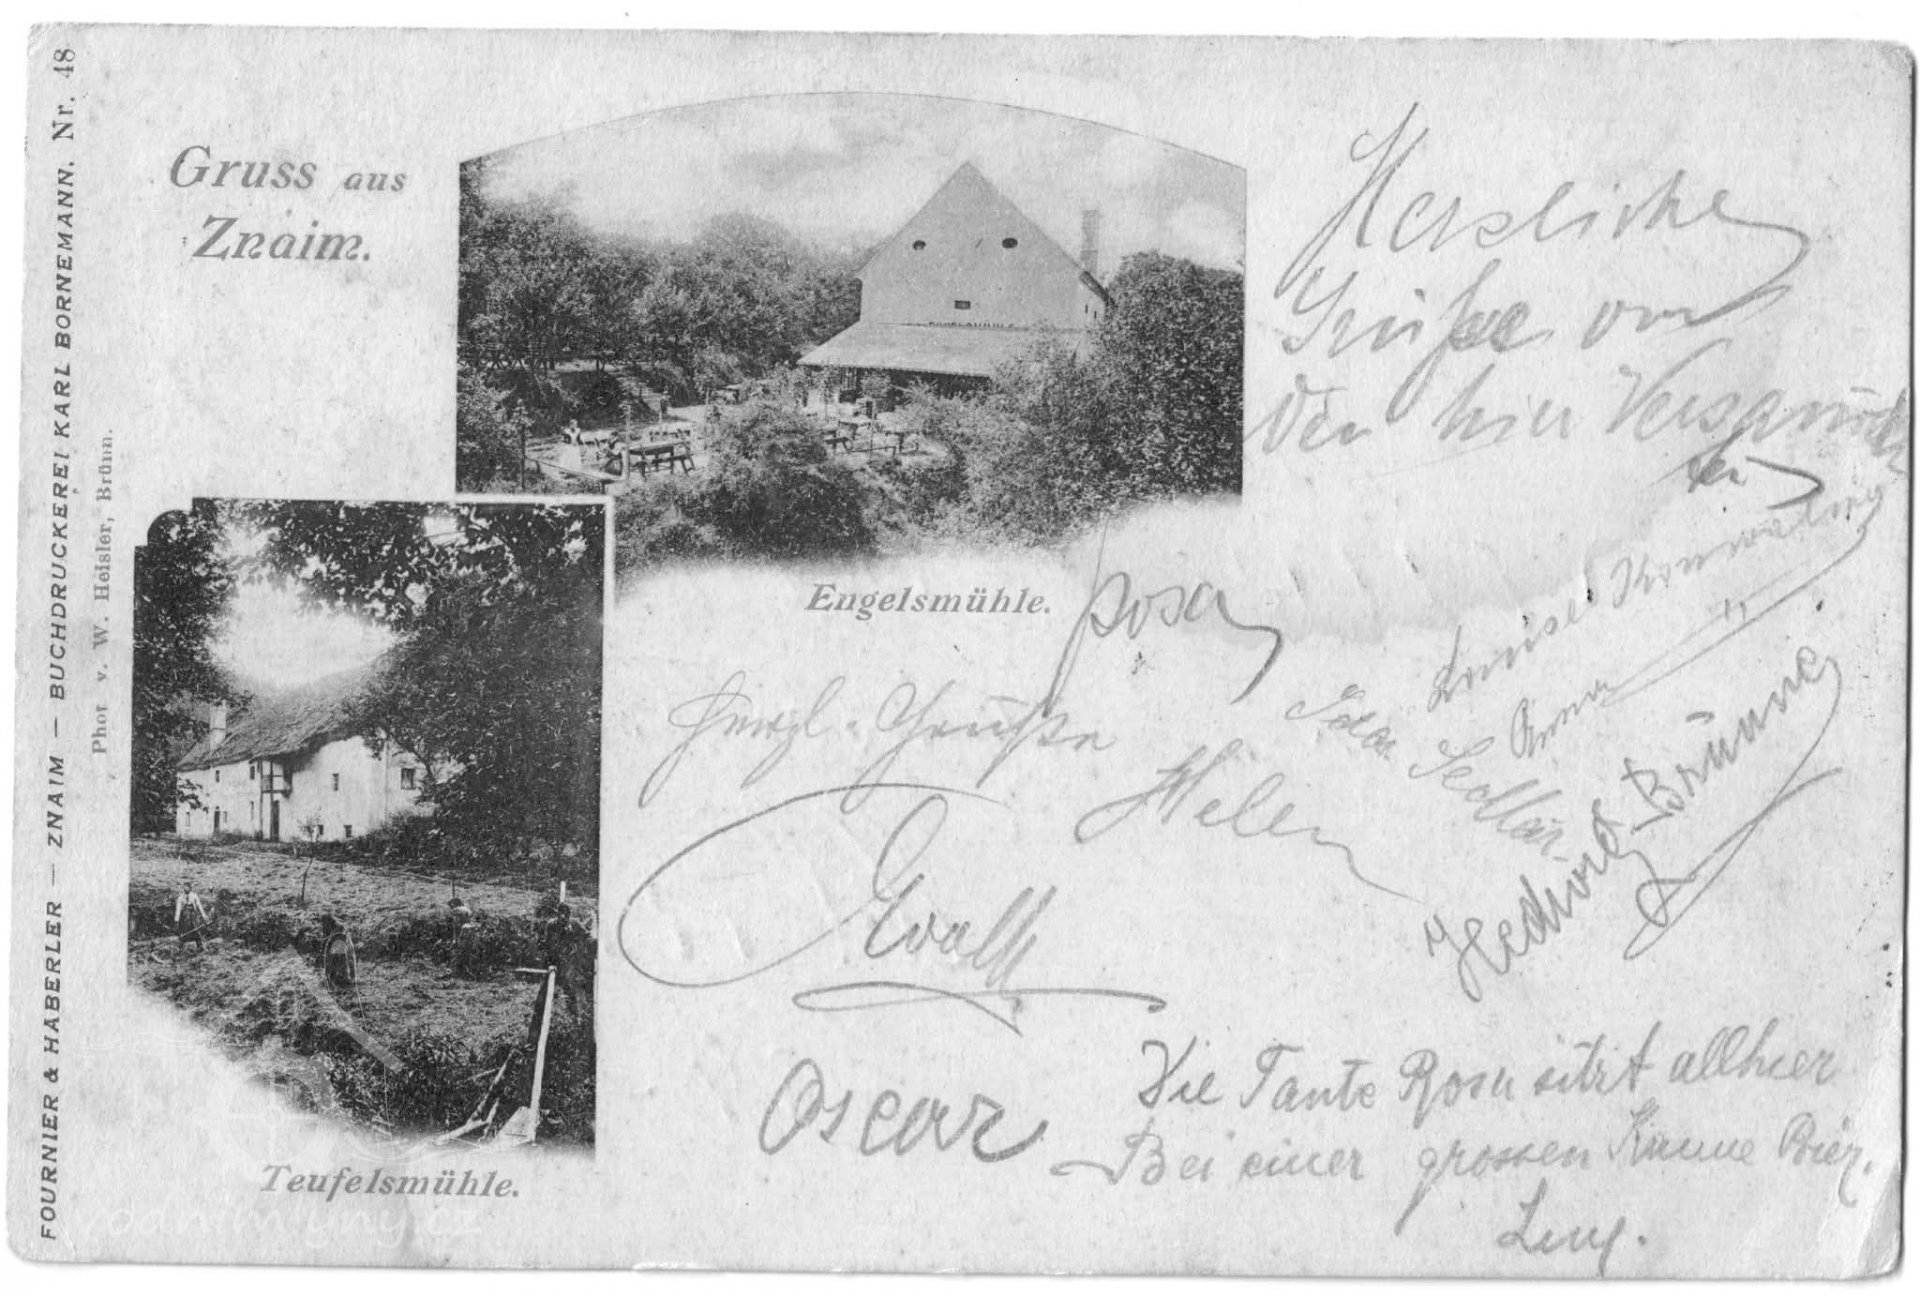 FOURNIER & HABERLER — ZNAIM — BUCHDRUCKEREI KARL BORNEMANN. Nr. 48
Phot. v. W. Heisler, Brünn.
Gruss aus
Znaim.
Engelsmühle.
Teufelsmühle.
Herzliche
Grüße von
den hier Versammel
ten
Rosa
Louise
Anna
Ida Sedlar
Grüße
Helen
Hedwig Brünner
Oscar
Die Tante Rosa sitzt allhier
Bei einer grossen Kanne Bier.
vodnimlyny.cz